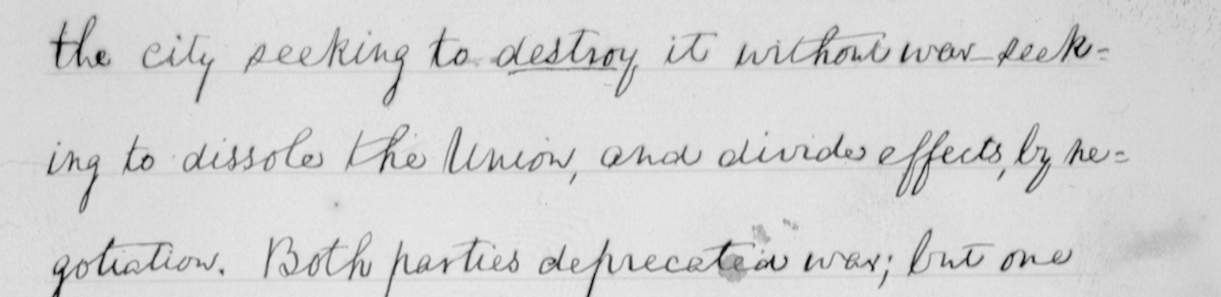 the city seeking to destroy it without war seek=
ing to dissole the Union, and divide effects, by ne=
gotiation. Both parties deprecated war; but one